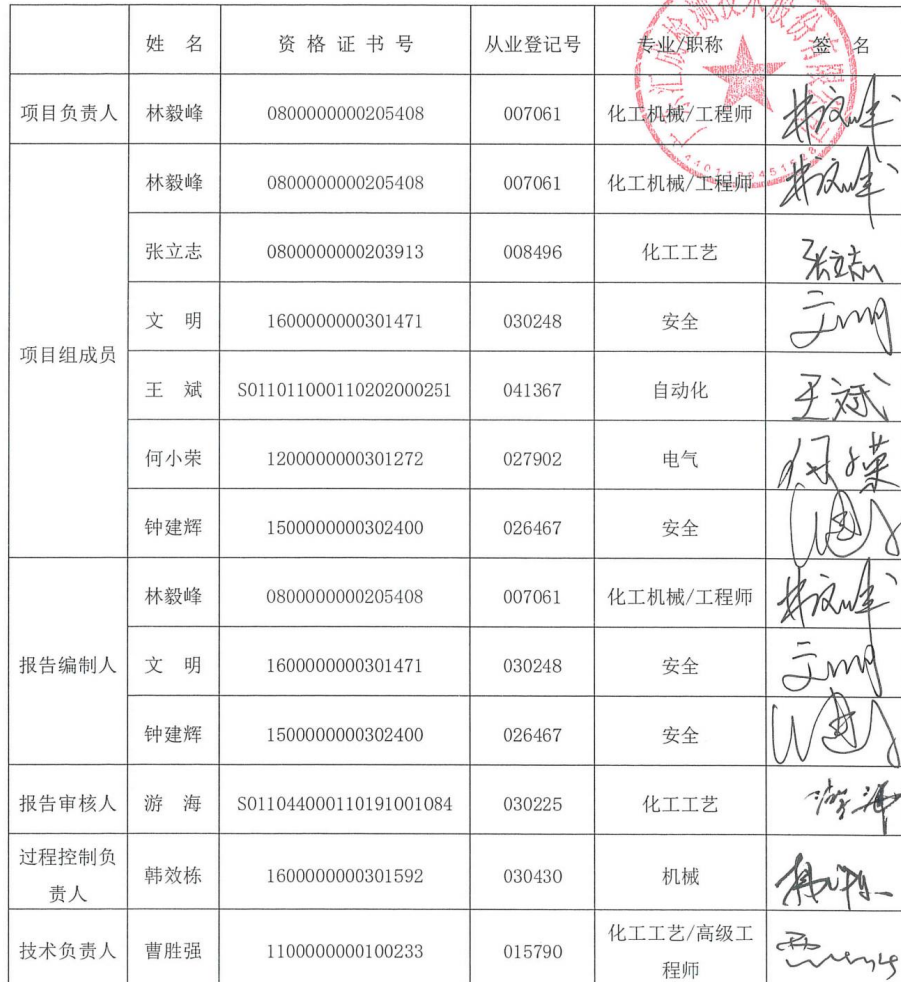 姓 名 资格证书号 从业登记号 专业/职称 签 名
项目负责人 林毅峰 0800000000205408 007061 化工机械/工程师 林毅峰
项目组成员 林毅峰 0800000000205408 007061 化工机械/工程师 林毅峰
张立志 0800000000203913 008496 化工工艺 张立志
文 明 1600000000301471 030248 安全 文明
王 斌 S011011000110202000251 041367 自动化 王斌
何小荣 1200000000301272 027902 电气 何小荣
钟建辉 1500000000302400 026467 安全
报告编制人 林毅峰 0800000000205408 007061 化工机械/工程师 林毅峰
文 明 1600000000301471 030248 安全 文明
钟建辉 1500000000302400 026467 安全
报告审核人 游 海 S011044000110191001084 030225 化工工艺 游海
过程控制负
责人 韩效栋 1600000000301592 030430 机械
技术负责人 曹胜强 1100000000100233 015790 化工工艺/高级工
程师